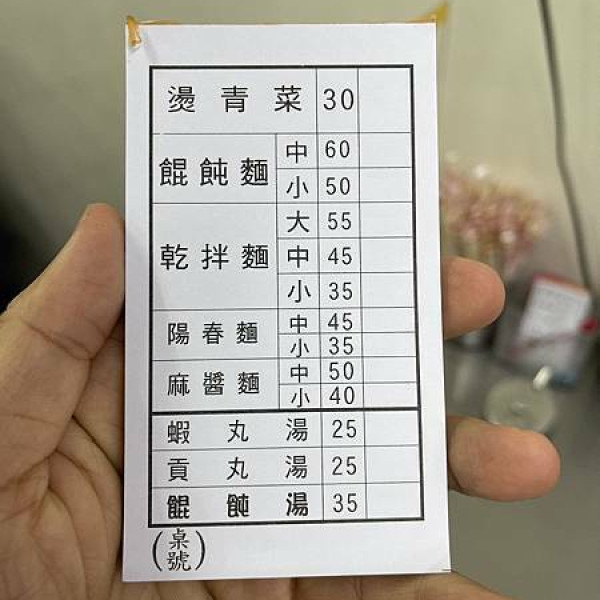 燙青菜 30
餛飩麵 中 60
小 50
乾拌麵 大 55
中 45
小 35
陽春麵 中 45
小 35
麻醬麵 中 50
小 40
蝦丸湯 25
貢丸湯 25
餛飩湯 35
(桌號)